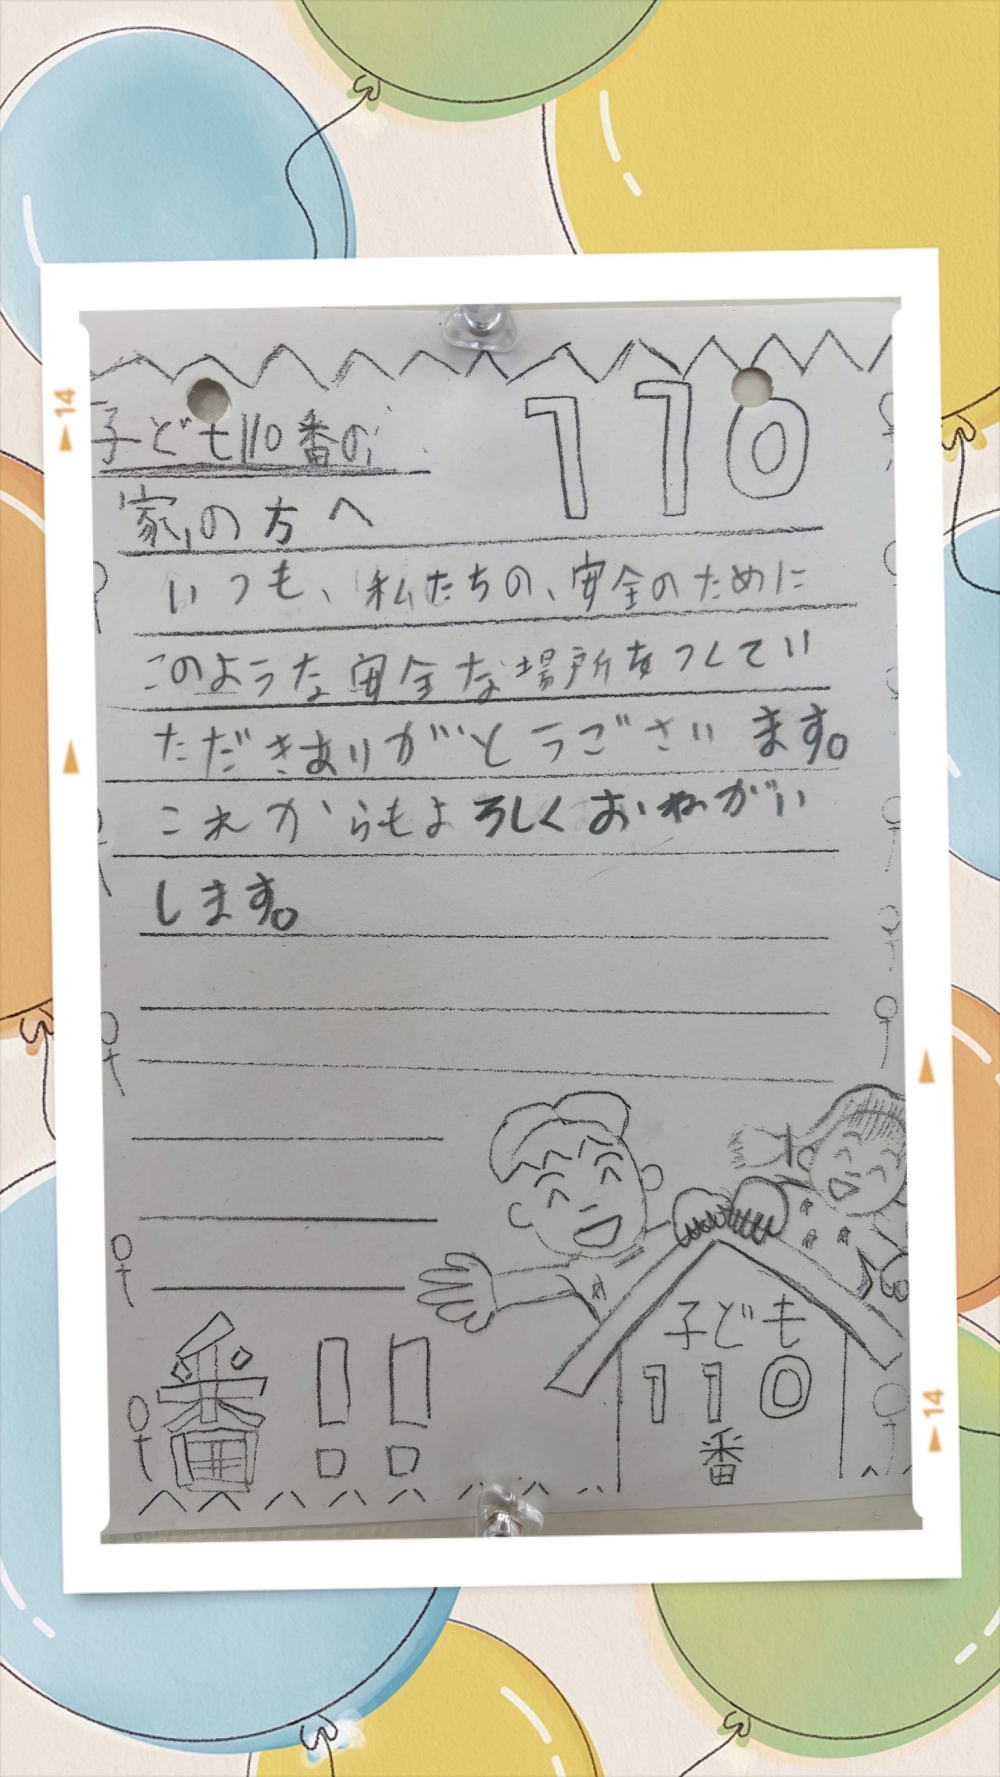 子ども110番の
110
家の方へ
いつも、私たちの、安全のために
このような安全な場所をつくてい
ただきありがとうございます。
これからもよろしくおねがい
します。
番!!
子ども
110
番
14
14